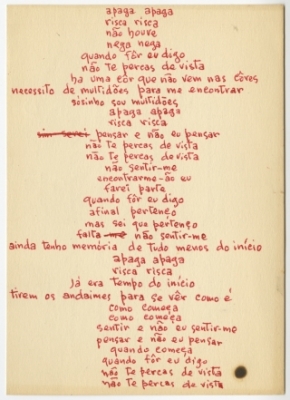 apaga apaga
risca risca
não houve
nega nega
quando fôr eu digo
não te percas de vista
há uma côr que não vem nas côres
necessito de multidões para me encontrar
sòsinho sou multidões
apaga apaga
risca risca
pensar e não eu pensar
não te percas de vista
não te percas de vista
não sentir-me
encontrarme-ão eu
farei parte
quando fôr eu digo
afinal pertenço
mas sei que pertenço
falta não sentir-me
ainda tenho memória de tudo menos do início
apaga apaga
risca risca
já era tempo do início
tirem os andaimes para se vêr como é
como começa
como começa
sentir e não eu sentir-me
pensar e não eu pensar
quando começa
quando fôr eu digo
não te percas de vista
não te percas de vista